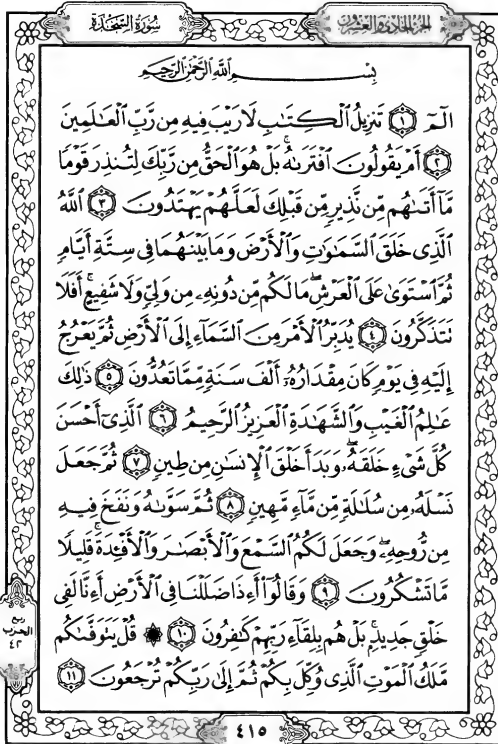 سُورَةُ السَّجْدَةِ
الجُزْءُ الحَادِي وَالعِشْرُونَ
بِسْمِ اللَّهِ الرَّحْمَٰنِ الرَّحِيمِ
الٓمٓ ١ تَنزِيلُ ٱلْكِتَٰبِ لَا رَيْبَ فِيهِ مِن رَّبِّ ٱلْعَٰلَمِينَ
٢ أَمْ يَقُولُونَ ٱفْتَرَىٰهُ ۚ بَلْ هُوَ ٱلْحَقُّ مِن رَّبِّكَ لِتُنذِرَ قَوْمًا
مَّآ أَتَىٰهُم مِّن نَّذِيرٍ مِّن قَبْلِكَ لَعَلَّهُمْ يَهْتَدُونَ ٣ ٱللَّهُ
ٱلَّذِى خَلَقَ ٱلسَّمَٰوَٰتِ وَٱلْأَرْضَ وَمَا بَيْنَهُمَا فِى سِتَّةِ أَيَّامٍ
ثُمَّ ٱسْتَوَىٰ عَلَى ٱلْعَرْشِ ۖ مَا لَكُم مِّن دُونِهِۦ مِن وَلِىٍّ وَلَا شَفِيعٍ ۚ أَفَلَا
تَتَذَكَّرُونَ ٤ يُدَبِّرُ ٱلْأَمْرَ مِنَ ٱلسَّمَآءِ إِلَى ٱلْأَرْضِ ثُمَّ يَعْرُجُ
إِلَيْهِ فِى يَوْمٍ كَانَ مِقْدَارُهُۥٓ أَلْفَ سَنَةٍ مِّمَّا تَعُدُّونَ ٥ ذَٰلِكَ
عَٰلِمُ ٱلْغَيْبِ وَٱلشَّهَٰدَةِ ٱلْعَزِيزُ ٱلرَّحِيمُ ٦ ٱلَّذِىٓ أَحْسَنَ
كُلَّ شَىْءٍ خَلَقَهُۥ ۖ وَبَدَأَ خَلْقَ ٱلْإِنسَٰنِ مِن طِينٍ ٧ ثُمَّ جَعَلَ
نَسْلَهُۥ مِن سُلَٰلَةٍ مِّن مَّآءٍ مَّهِينٍ ٨ ثُمَّ سَوَّىٰهُ وَنَفَخَ فِيهِ
مِن رُّوحِهِۦ ۖ وَجَعَلَ لَكُمُ ٱلسَّمْعَ وَٱلْأَبْصَٰرَ وَٱلْأَفْـِٔدَةَ ۚ قَلِيلًا
مَّا تَشْكُرُونَ ٩ وَقَالُوٓا۟ أَءِذَا ضَلَلْنَا فِى ٱلْأَرْضِ أَءِنَّا لَفِى
خَلْقٍ جَدِيدٍۭ ۚ بَلْ هُم بِلِقَآءِ رَبِّهِمْ كَٰفِرُونَ ١٠ ۞ قُلْ يَتَوَفَّىٰكُم
مَّلَكُ ٱلْمَوْتِ ٱلَّذِى وُكِّلَ بِكُمْ ثُمَّ إِلَىٰ رَبِّكُمْ تُرْجَعُونَ ١١
ربع
الحزب
٤٢
٤١٥